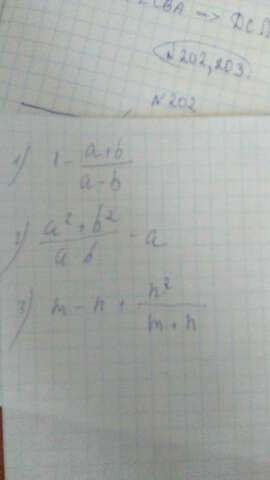 №202, 203.
№202
1) 1 - (a+b)/(a-b)
2) (a² + b²)/(a b) - a
3) m - n + n²/(m+n)